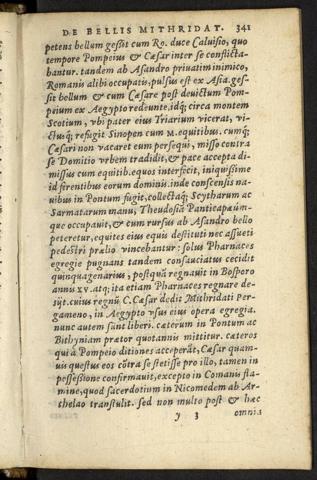 DE BELLIS MITHRIDAT. 341
petens bellum gessit cum Ro. duce Caluisio, quo
tempore Pompeius & Cæsar inter se conflicta-
bantur. tandem ab Asandro priuatim inimico,
Romanis alibi occupatis, pulsus est ex Asia. ges-
sit bellum & cum Cæsare post deuictum Pom-
peium ex Aegypto redeunte. idq́; circa montem
Scotium, vbi pater eius Triarium vicerat, vi-
ctusq́; refugit Sinopen cum M. equitibus. cumq́;
Cæsari non vacaret eum persequi, misso contra
se Domitio vrbem tradidit, & pace accepta di-
missus cum equitib. equos interfecit, iniquissime
id ferentibus eorum dominis. inde conscensis na-
uibus in Pontum fugit, collectaq́; Scytharum ac
Sarmatarum manu, Theodosiã Panticapæúm-
que occupauit, & cum rursus ab Asandro bello
peteretur, equites eius equis destituti nec assueti
pedestri prælio vincebantur: solus Pharnaces
egregie pugnans tandem confauciatus cecidit
quinquagenarius, postquã regnauit in Bosporo
annis XV. atq; ita etiam Pharnaces regnare de-
sijt. cuius regnũ C. Cæsar dedit Mithridati Per-
gameno, in Aegypto vsus eius opera egregia.
nunc autem sunt liberi. cæterum in Pontum ac
Bithyniam prætor quotannis mittitur. cæteros
qui à Pompeio ditiones acceperãt, Cæsar quam-
uis questus eos cõtra se stetisse pro illo, tamen in
possessione confirmauit, excepto in Comanis fla-
mine, quod sacerdotium in Nicomedem ab Ar-
chelao transtulit. sed non multo post & hæc
y 3 omnia